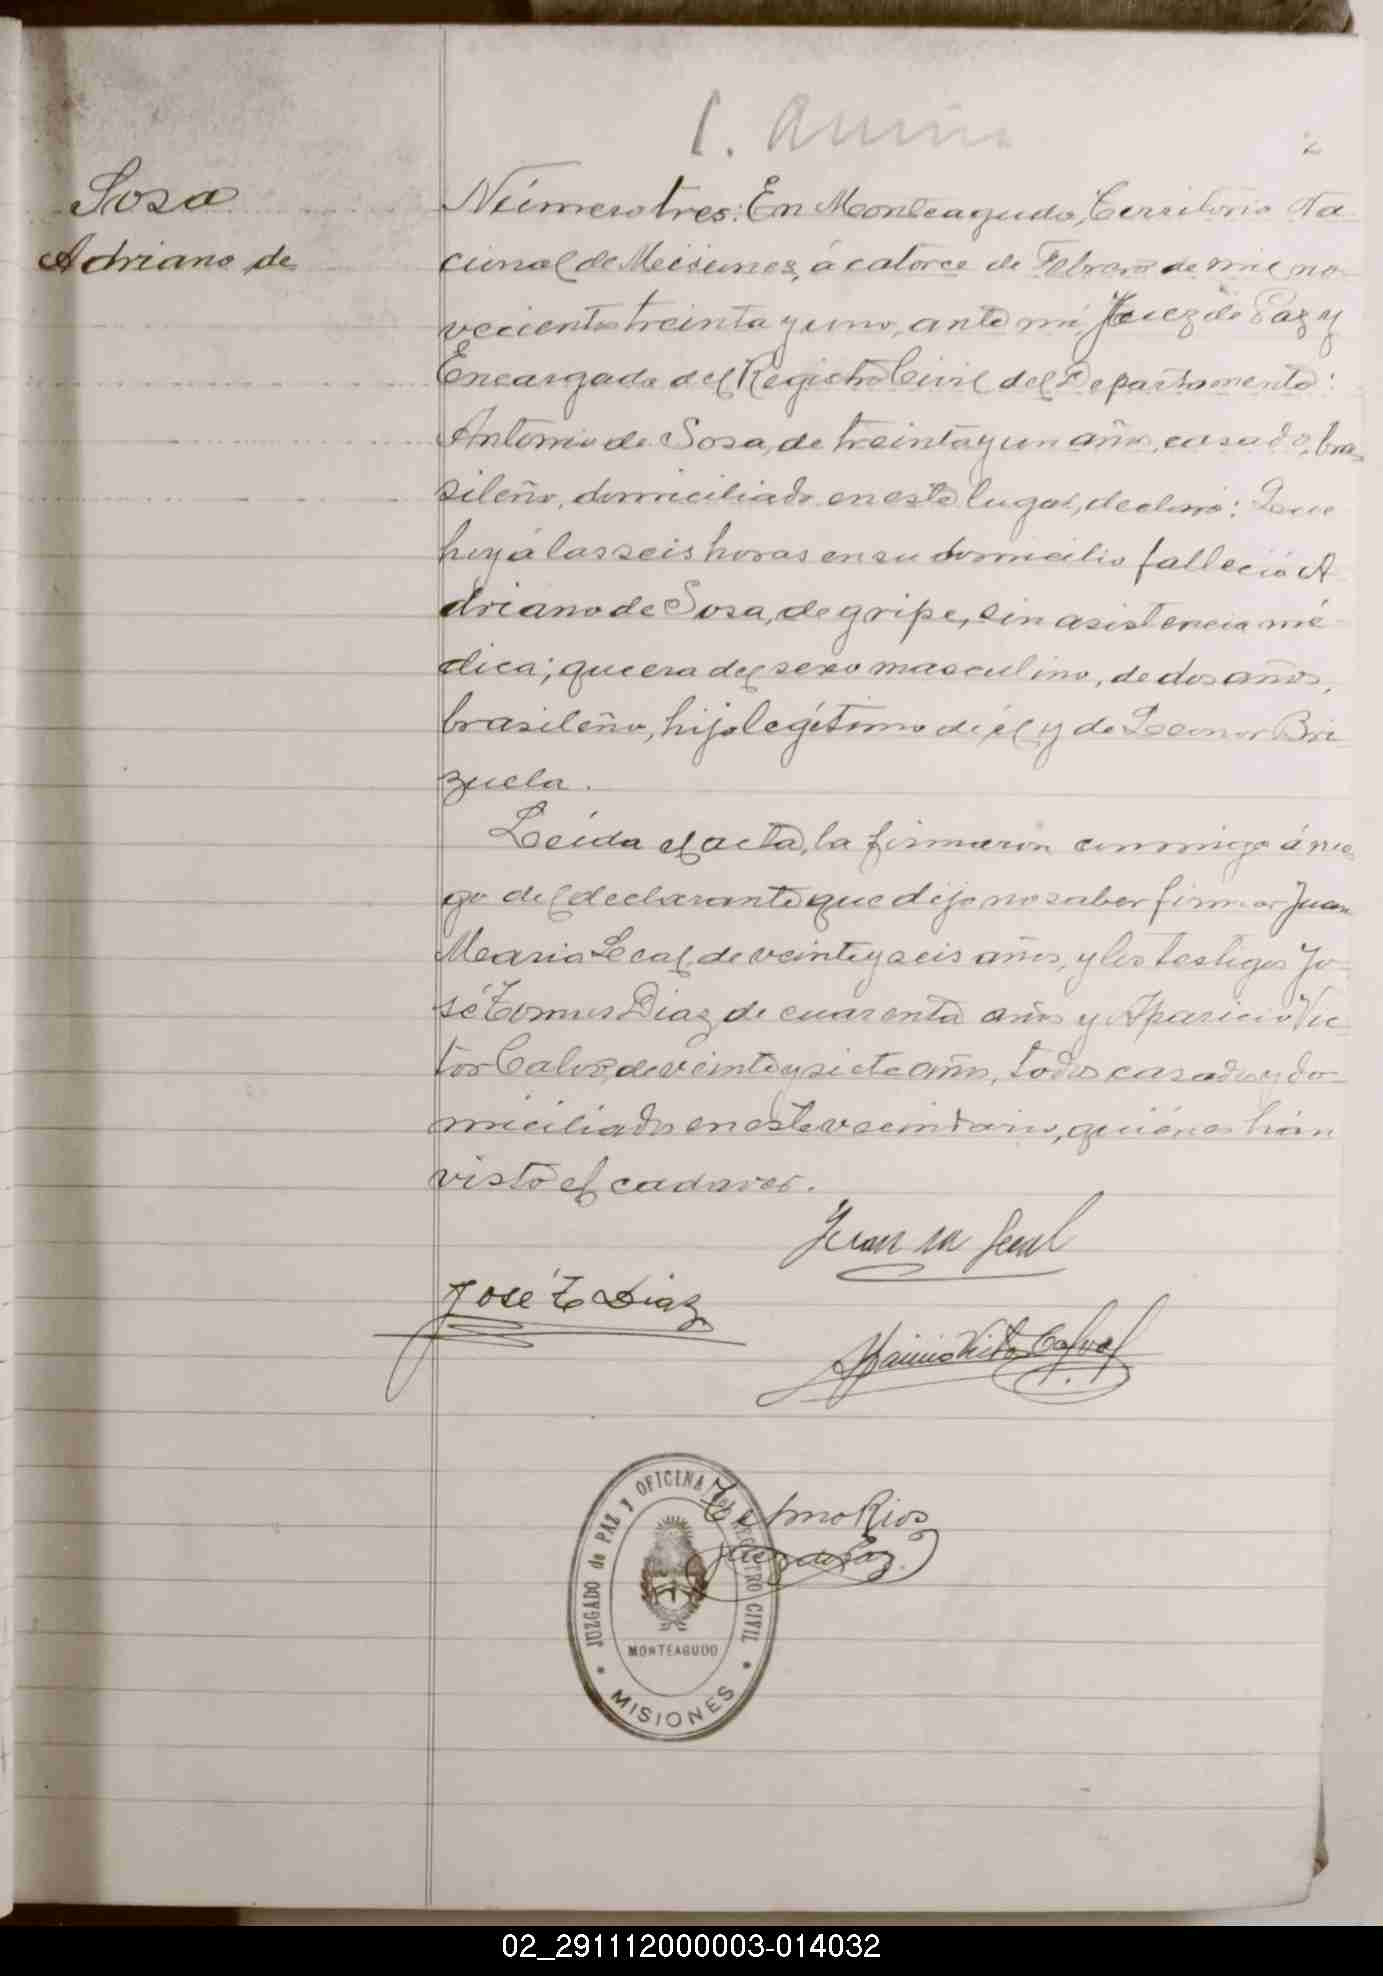 2
Sosa
Adriano de
Número tres: En Monteagudo, Territorio Na-
cional de Misiones, á catorce de Febrero de mil no-
vecientos treinta y uno, ante mí, Juez de Paz y
Encargado del Registro Civil del Departamento:
Antonio de Sosa, de treinta y un años, casado, bra-
sileño, domiciliado en este lugar, declaró: Que
hoy á las seis horas en su domicilio falleció A-
driano de Sosa, de gripe, sin asistencia mé-
dica; que era del sexo masculino, de dos años,
brasileño, hijo legítimo de él y de Leonor Bri-
zuela.
Leída el acta, la firmaron conmigo á rue-
go del declarante que dijo no saber firmar Juan
Maria Leal, de veinte y seis años, y los testigos Jo-
sé Tomas Diaz, de cuarenta años y Aparicio Vic-
tor Calvo, de veinte y siete años, todos casados y do-
miciliados en este vecindario, quiénes hán
visto el cadaver.
Juan M Leal
José T Diaz
Aparicio Victor Calvo
Telmo Rios
Juez de Paz.
JUZGADO de PAZ y OFICINA del REGISTRO CIVIL
MONTEAGUDO
* MISIONES *
02_291112000003-014032